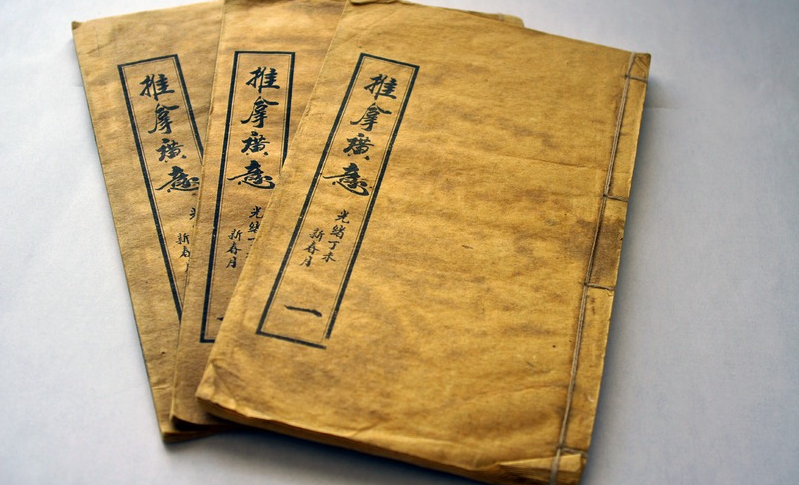 推拿廣意
光緒丁未
新春月
一
推拿廣意
光緒丁
新春月
推拿廣意
新春